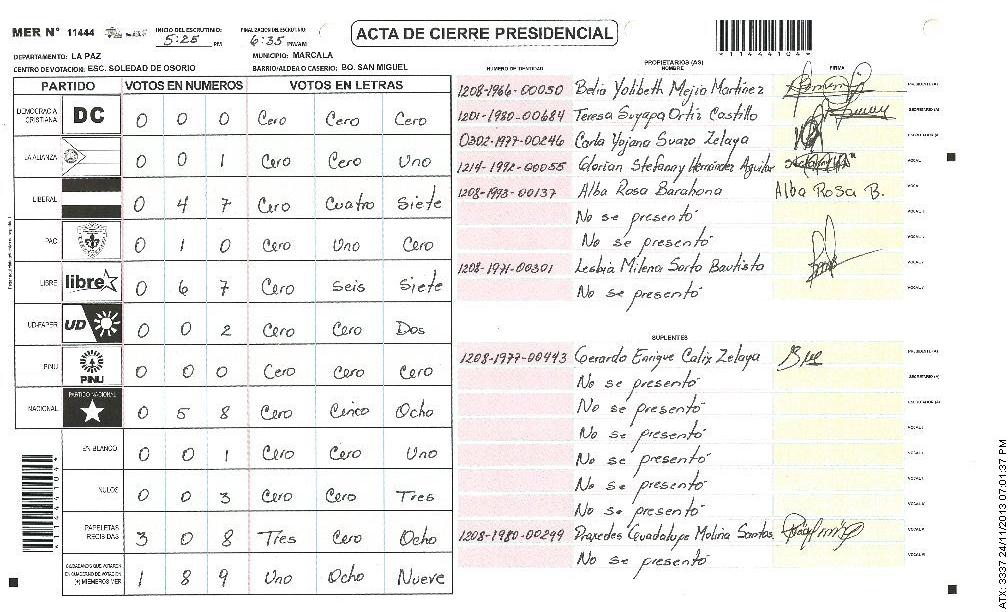 MER N° 11444
INICIO DEL ESCRUTINIO: 5:25 PM
FINALIZACION DEL ESCRUTINIO: 6:35 PM/AM
ACTA DE CIERRE PRESIDENCIAL
11444104
DEPARTAMENTO: LA PAZ
MUNICIPIO: MARCALA
CENTRO DE VOTACION: ESC. SOLEDAD DE OSORIO
BARRIO/ALDEA O CASERIO: BO. SAN MIGUEL
PARTIDO VOTOS EN NUMEROS VOTOS EN LETRAS
DEMOCRACIA CRISTIANA DC 0 0 0 Cero Cero Cero
LA ALIANZA 0 0 1 Cero Cero Uno
LIBERAL 0 4 7 Cero Cuatro Siete
PAC 0 1 0 Cero Uno Cero
LIBRE libre 0 6 7 Cero Seis Siete
UD-FAPER UD 0 0 2 Cero Cero Dos
PINU PINU 0 0 0 Cero Cero Cero
NACIONAL PARTIDO NACIONAL 0 5 8 Cero Cinco Ocho
EN BLANCO 0 0 1 Cero Cero Uno
NULOS 0 0 3 Cero Cero Tres
PAPELETAS RECIBIDAS 3 0 8 Tres Cero Ocho
CIUDADANOS QUE VOTARON EN CUADERNO DE VOTACION (+) MIEMBROS MER 1 8 9 Uno Ocho Nueve
PROPIETARIOS (AS)
NUMERO DE IDENTIDAD NOMBRE FIRMA
1208-1966-00050 Belia Yolibeth Mejia Martinez
1201-1980-00684 Teresa Suyapa Ortiz Castillo
0302-1977-00246 Carla Yojana Suazo Zelaya
1214-1992-00055 Glorian Stefanny Hernández Aguilar
1208-1993-00137 Alba Rosa Barahona Alba Rosa B.
No se presentó
No se presentó
1208-1971-00301 Lesbia Milena Sorto Bautista
No se presentó
SUPLENTES
1208-1977-00443 Gerardo Enrique Calix Zelaya
No se presentó
No se presentó
No se presentó
No se presentó
No se presentó
No se presentó
1208-1980-00299 Praxedes Guadalupe Molina Santos
No se presentó
ATX: 3337 24/11/2013 07:01:37 PM